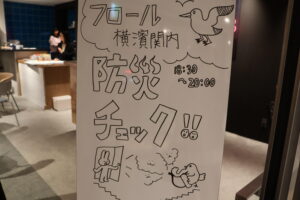 フロール
横濱関内
防災
18:30
～20:00
チェック!!